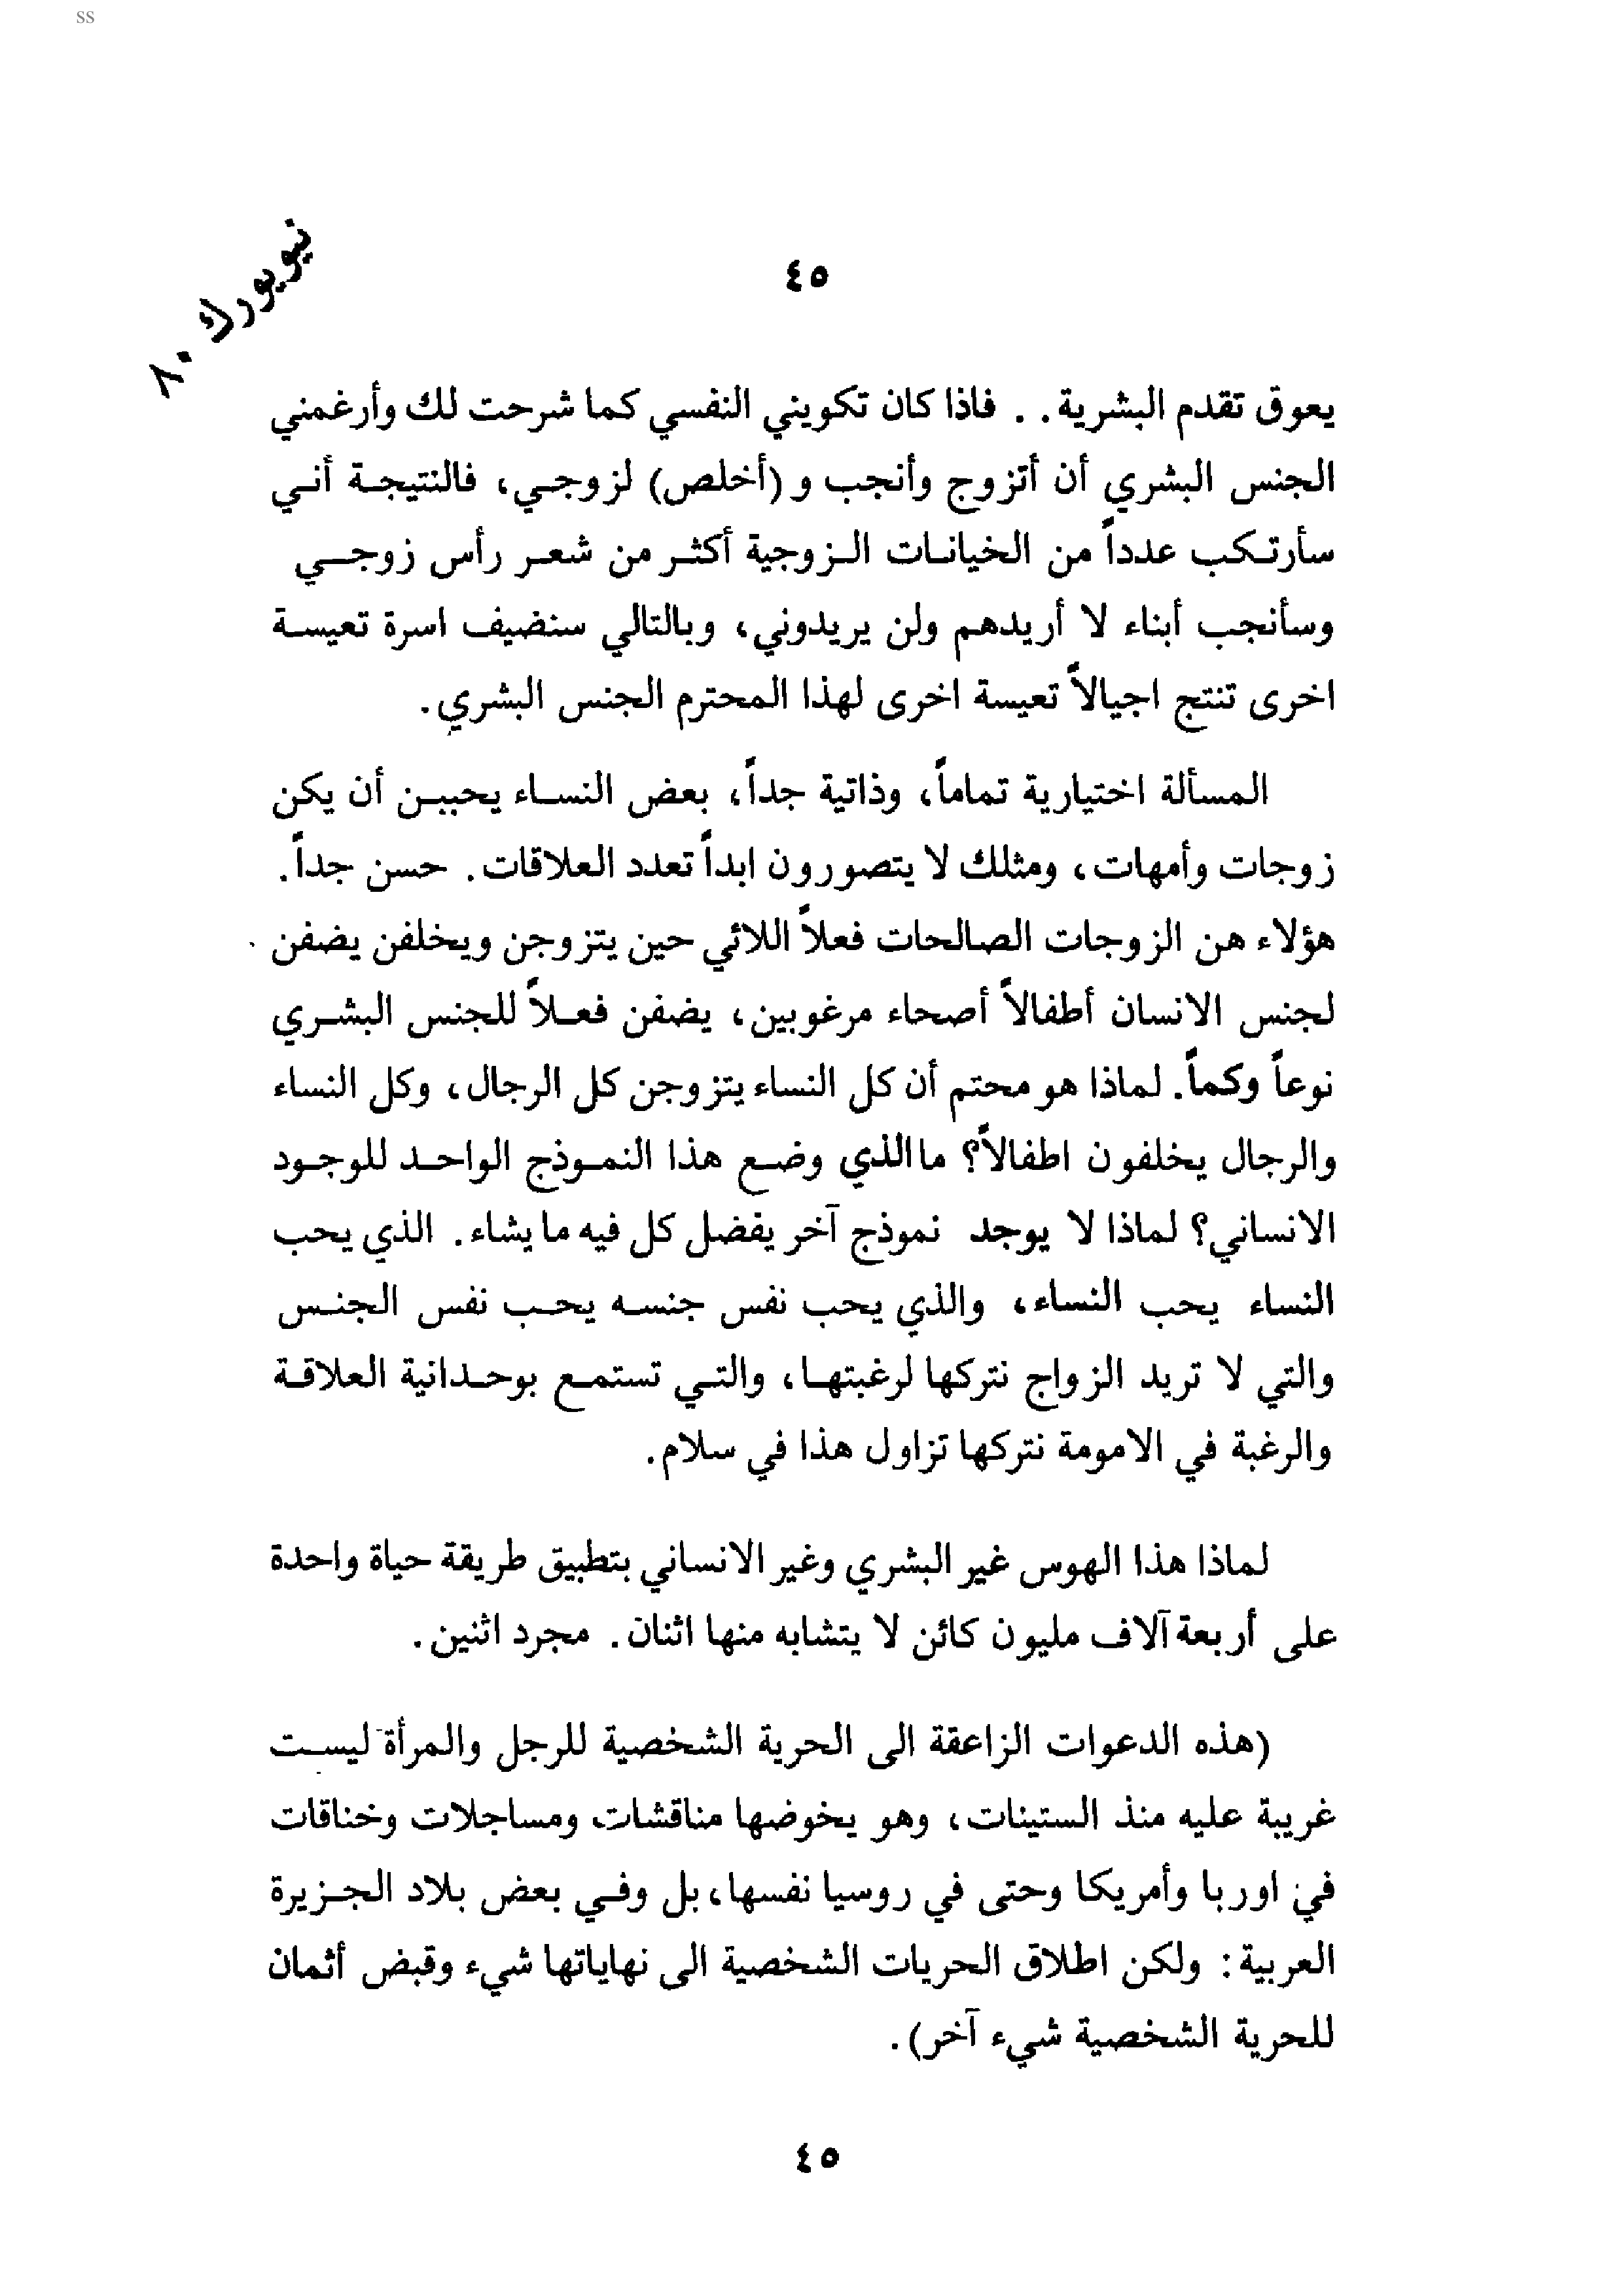 ss
نيويورك ٨٠
٤٥
يعوق تقدم البشرية . . فاذا كان تكويني النفسي كما شرحت لك وأرغمني
الجنس البشري أن أتزوج وأنجب و (أخلص) لزوجي، فالنتيجة أني
سأرتكب عدداً من الخيانات الزوجية أكثر من شعر رأس زوجي
وسأنجب أبناء لا أريدهم ولن يريدوني، وبالتالي سنضيف اسرة تعيسة
اخرى تنتج اجيالاً تعيسة اخرى لهذا المحترم الجنس البشري.
المسألة اختيارية تماماً، وذاتية جداً، بعض النساء يحببن أن يكن
زوجات وأمهات، ومثلك لا يتصورون ابداً تعدد العلاقات. حسن جداً.
هؤلاء هن الزوجات الصالحات فعلاً اللائي حين يتزوجن ويخلفن يضفن
لجنس الانسان أطفالاً أصحاء مرغوبين، يضفن فعلاً للجنس البشري
نوعاً وكماً. لماذا هو محتم أن كل النساء يتزوجن كل الرجال، وكل النساء
والرجال يخلفون اطفالاً؟ ما الذي وضع هذا النموذج الواحد للوجود
الانساني؟ لماذا لا يوجد نموذج آخر يفضل كل فيه ما يشاء. الذي يحب
النساء يحب النساء، والذي يحب نفس جنسه يحب نفس الجنس
والتي لا تريد الزواج نتركها لرغبتها، والتي تستمع بوحدانية العلاقة
والرغبة في الامومة نتركها تزاول هذا في سلام.
لماذا هذا الهوس غير البشري وغير الانساني بتطبيق طريقة حياة واحدة
على أربعة آلاف مليون كائن لا يتشابه منها اثنان. مجرد اثنين.
(هذه الدعوات الزاعقة الى الحرية الشخصية للرجل والمرأة ليست
غريبة عليه منذ الستينات، وهو يخوضها مناقشات ومساجلات وخناقات
في اوربا وأمريكا وحتى في روسيا نفسها، بل وفي بعض بلاد الجزيرة
العربية: ولكن اطلاق الحريات الشخصية الى نهاياتها شيء وقبض أثمان
للحرية الشخصية شيء آخر).
٤٥